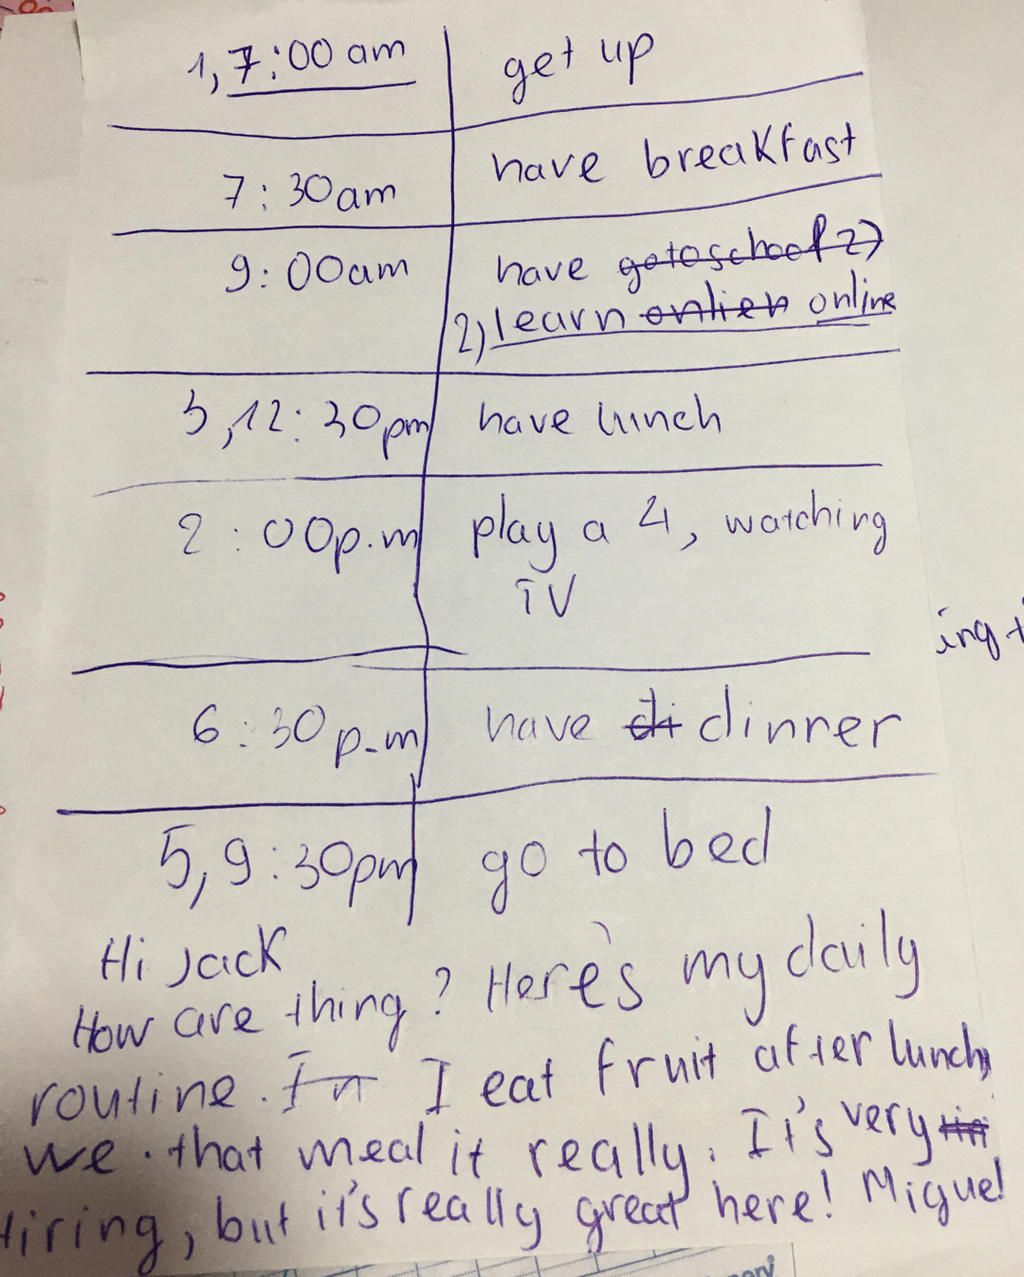 1, 7:00 am get up
7:30am have breakfast
9:00am have gotoschool 2)
2) learn onlien online
3, 12:30pm have lunch
2:00p.m play a 4, watching
TV
ing
6:30 p.m have di dinner
5, 9:30pm go to bed
Hi Jack
How are thing? Here's my daily
routine. In I eat fruit after lunch,
we. that meal it really. It's very
tiring, but it's really great here! Miguel